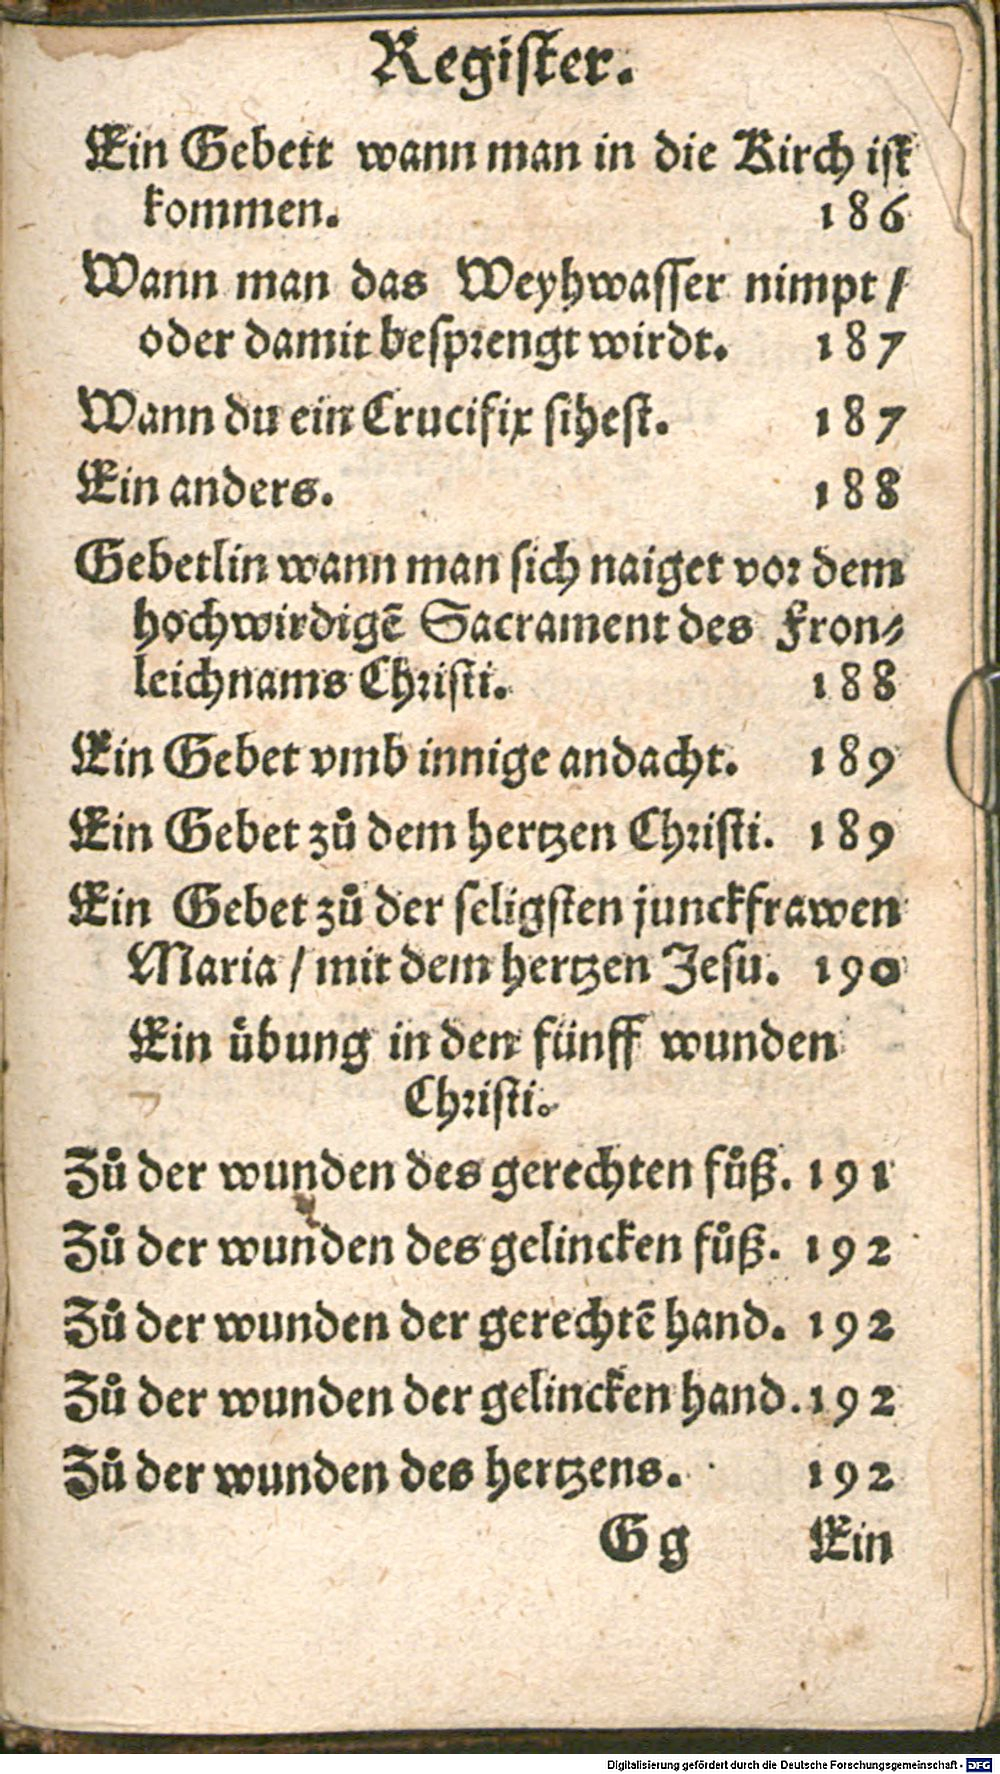 Register.
Ein Gebett wann man in die Kirch ist
kommen. 186
Wann man das Weyhwasser nimpt /
oder damit besprengt wirdt. 187
Wann du ein Crucifix sihest. 187
Ein anders. 188
Gebetlin wann man sich naiget vor dem
hochwirdigē Sacrament des Fron⸗
leichnams Christi. 188
Ein Gebet vmb innige andacht. 189
Ein Gebet zů dem hertzen Christi. 189
Ein Gebet zů der seligsten junckfrawen
Maria / mit dem hertzen Jesu. 190
Ein übung in den fünff wunden
Christi.
Zů der wunden des gerechten fůß. 191
Zů der wunden des gelincken fůß. 192
Zů der wunden der gerechtē hand. 192
Zů der wunden der gelincken hand. 192
Zů der wunden des hertzens. 192
Gg Ein
Digitalisierung gefördert durch die Deutsche Forschungsgemeinschaft - DFG